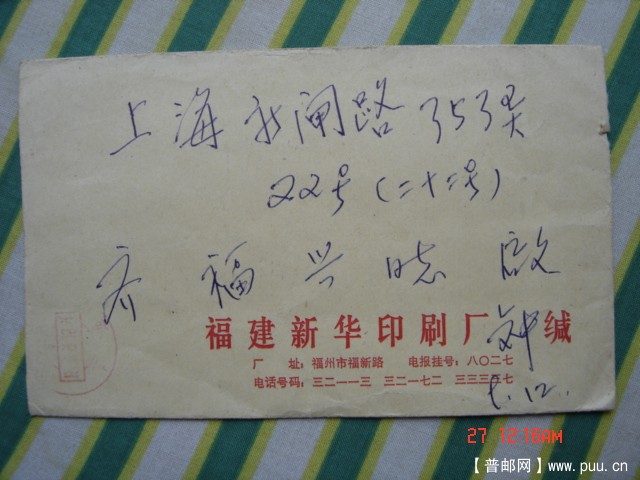 上海新闸路353弄
22号(二十二号)
齐福兴 启
福建新华印刷厂 缄
厂 址:福州市福新路 电报挂号:八〇二七
电话号码:三二一一三 三二一七二 三三三五七
12.
27 12:16AM
【普邮网】www.puu.cn